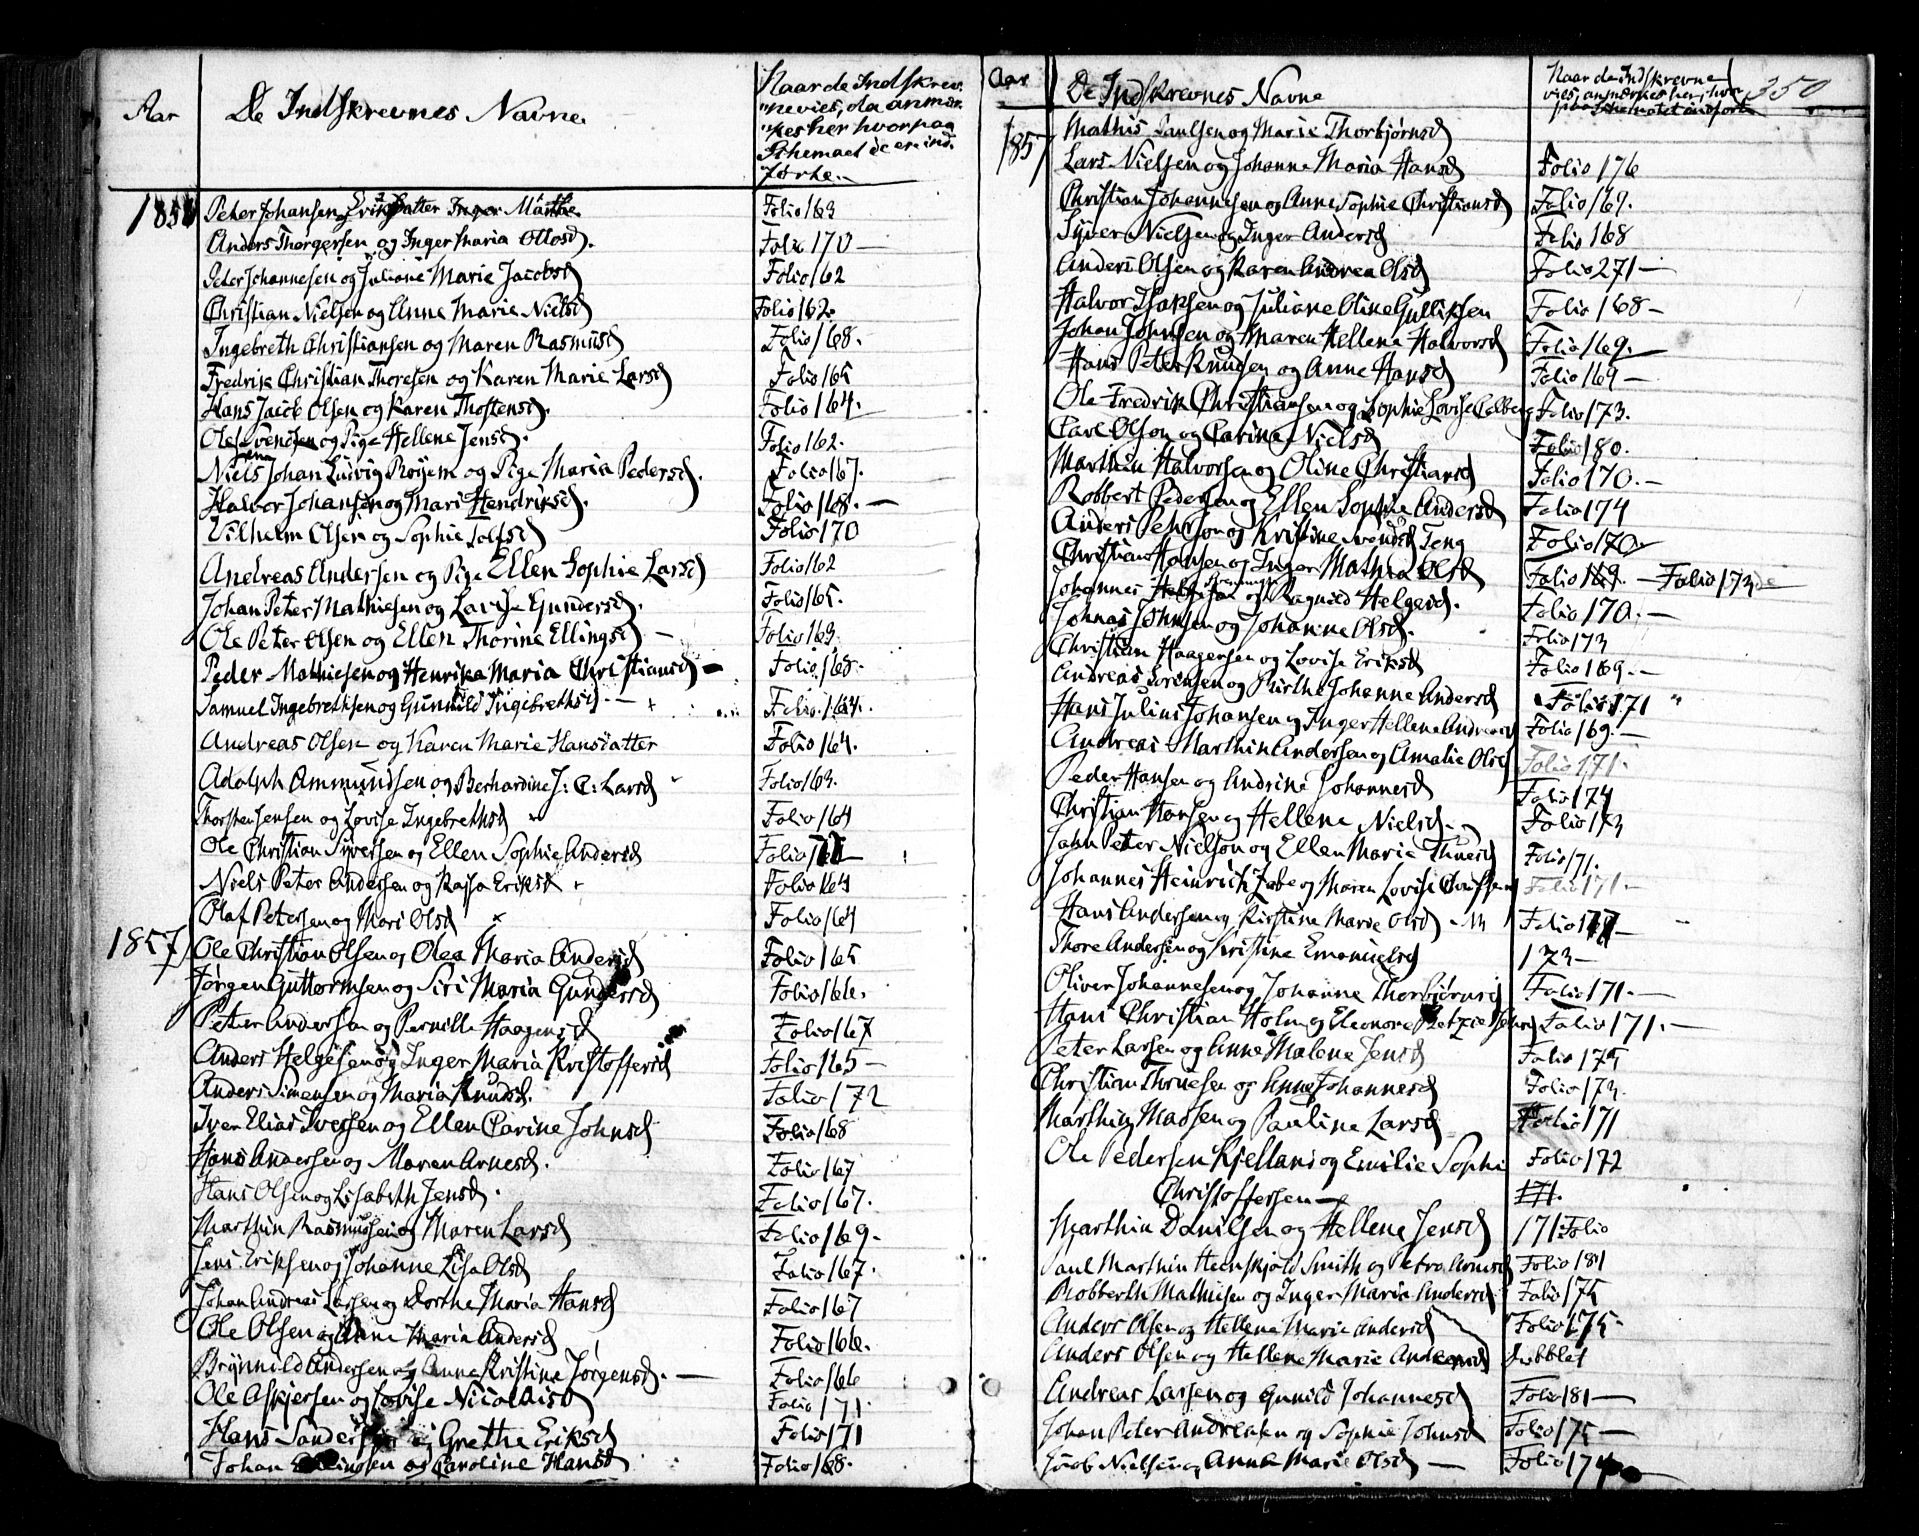 Aar
De Indskrevnes Navne
Naar de Indskrev-
"nevies, da anmær-
"kes her hvorpaa
Schemaet de er ind-
førte.
1856 Peter Johansen Eriksdatter Inger Marthe Folio 163
Anders Thorgersen og Inger Maria Olsd. Folio 170 —
Peter Johannesen og Juliane Marie Jacobsd Folio 162
Christian Nielsen og Anne Marie Nielsd Folio 162.
Ingebreth Christiansen og Maren Rasmusd Folio 168.
Fredrik Christian Thoresen og Karen Marie Larsd Folio 165
Hans Jacob Olsen og Karen Thostensd. Folio 164.
Ole Svendsen og Pige Hellene Jensd. Folio 162.
Niels Johan Ludvig Røyem og Pige Maria Pedersd. Folio 167.
Halvor Johansen og Mari Hendriksd. Folio 168. —
Vilhelm Olsen og Sophie Tolfsd Folio 170
Andreas Andersen og Pige Ellen Sophie Larsd Folio 162
Johan Peter Mathiesen og Lovise Gundersd. Folio 165.
Ole Peter Olsen og Ellen Thorine Ellingsd — Folio 163
Peder Mathiesen og Henrika Maria Christiansd — Folio 168.
Samuel Ingebrethsen og Gunhild Ingebrethsd. — Folio 164.
Andreas Olsen og Karen Marie Hansdatter Folio 164.
Adolph Ammundsen og Berhardine J: C: Larsd Folio 163.
Thorsten Jensen og Lovise Ingebrethsd Folio 164
Ole Christian Syversen og Ellen Sophie Andersd Folio
Niels Peter Andersen og Kajsa Eriksd Folio 164
Olaf Petersen og Mari Olsd Folio 164
1857 Ole Christian Olsen og Olea Maria Andersd Folio 165
Jørgen Guttormsen og Siri Maria Gundersd Folio 166.
Peter Andersen og Pernille Haagensd Folio 167
Anders Helgesen og Inger Maria Kristoffersd Folio 165 —
Anders Simensen og Maria Knudsd. Folio 172
Iver Elias Iversen og Ellen Carine Johnsd Folio 168
Hans Andersen og Maren Arnesd. Folio 167
Hans Olsen og Lisabeth Jensd. Folio 167.
Marthin Rasmussen og Maren Larsd Folio 169.
Jens Eriksen og Johanne Lisa Olsd Folio 167.
Johan Andreas Larsen og Dorthe Maria Hansd Folio 167
Ole Olsen og Anne Maria Andersd Folio 166.
Brynnild Andersen og Anne Kristine Jørgensd. — Folio 166
Ole Askjersen og Lovise Nicolaisd Folio 171
Hans Sanders og Grethe Eriksd Folio 171
Johan og Caroline Hansd Folio 168.
Aar
De Indskrevnes Navne
Naar de Indskrevne
vies, anmærkes her, hvor
paa Schematet indførte
350
1857 Mathis Paulsen og Marie Thorbjørnsd
Lars Nielsen og Johanne Maria Hansd Folio 176
Christian Johannesen og Anne Sophie Christiansd Folio 169.
Syver Nielsen og Inger Andersd Folio 168
Anders Olsen og Karen Andrea Olsd Folio 271 —
Halvor Isaksen og Juliane Oline Gulliksen Folio 168 —
Johan Johnsen og Maren Hellene Halvorsd Folio 169. —
Hans Peter Knudsen og Anne Hansd Folio 169 —
Ole Fredrik Christiansen og Sophie Lovise Folio 173.
Carl Olson og Carina Nielsd Folio 180.
Marthin Halvorsen og Oline Christiansd Folio 170. —
Robbert Pedersen og Ellen Sophie Andersd Folio 174
Anders Pehrson og Kristine Svendsd Teng Folio 170.
Christian Hansen og Inger Mathia Olsd Folio 169. — Folio 173
Johannes og Ragnild Helgesd. Folio 170. —
Johnas Johnsen og Johanne Olsd. Folio 173
Christian Haagensen og Lovise Eriksd Folio 169. —
Andreas Sørensen og Birthe Johanne Andersd Folio 171 "
Hans Julius Johansen og Inger Hellene Andreasd Folio 169. —
Andreas Marthin Andersen og Amalie Olsd Folio 171.
Peder Hansen og Andrine Johannesd Folio 174
Christian Hansen og Hellene Nielsd. Folio 173
John Peter Nielson og Ellen Marie Thuesd Folio 171.
Johannes Heinrich og Maren Lovise Folio 171. —
Hans Andersen og Kirstine Marie Olsd Folio 171 —
Thore Andersen og Kristine Emanuelsd 173 —
Oliver Johannesen og Johanne Thorbjørnsd Folio 171. —
Hans Christian Holm og Eleonore Folio 171. —
Peter Larsen og Anne Malene Jensd Folio 175
Christian Thruesen og Anne Johannesd Folio 173.
Marthin Madsen og Pauline Larsd Folio 171
Ole Pedersen Kjelland og Emilie Sophi Folio 172
Christoffersen — 171.
Marthin Danilsen og Hellene Jensd 171 Folio
Paul Marthin Heinskjold Smith og Petra Arnesd Folio 181
Robberth Mathisen og Inger Maria Andersd Folio 175
Anders Olsen og Hellene Marie Andersd Folio 175
Anders Olsen og Hellene Marie Andersd dobblet
Andreas Larsen og Gunild Johannesd Folio 181 —
Johan Peter Andreasen og Sophie Johnsd Folio 175 —
Jacob Nielsen og Anne Marie Olsd — Folio 174